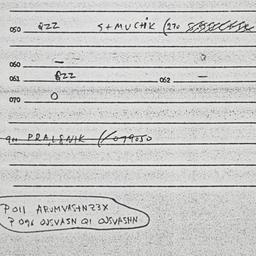 050 QZZ S+MUCHIK (270
060 — o
061 QZZ 062 —
070 O
900 PRAISNIK (/099050
P 011 ARUMVAS+NZ3X
P 096 OUSVASN QI OUSVASHN